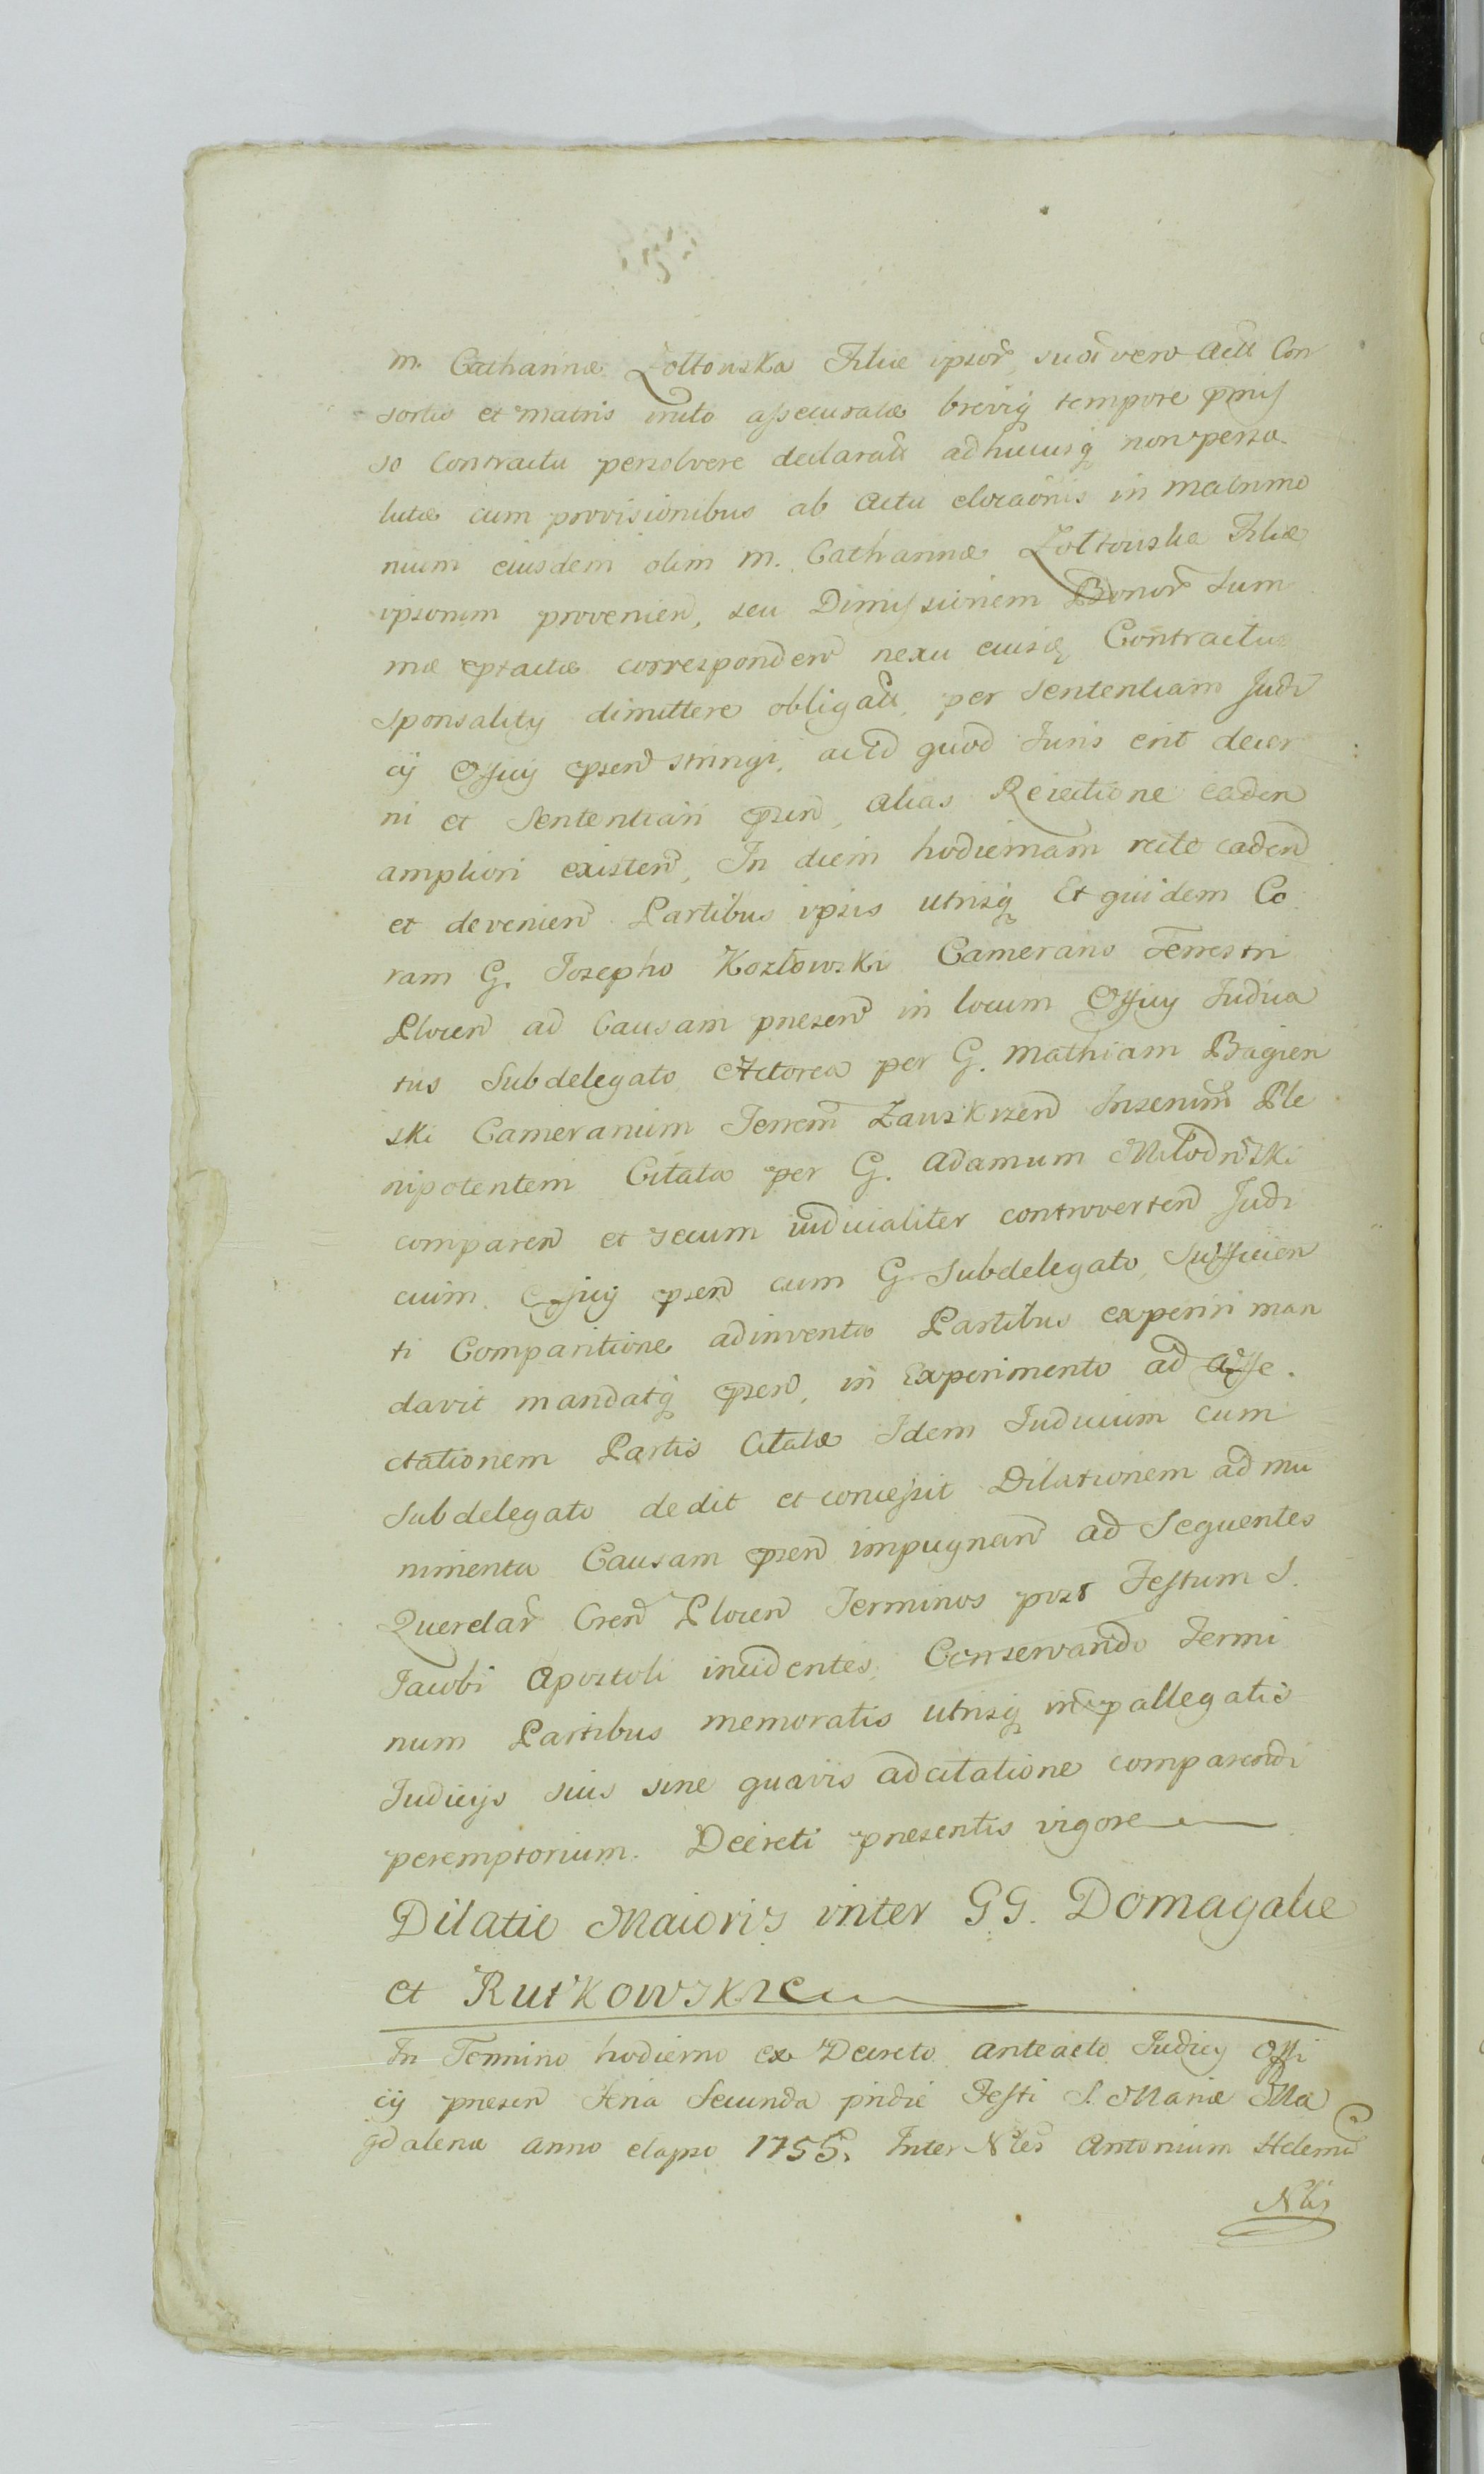 m. Catharinæ Żołtowska Filiæ ipsor̃, suoi vero Actt Con
sortis et Matris inito assecuratæ brevig tempore pmis
so Contractu persolvere declaratt adhucusq̨ non perso
lutæ cum provisionibus ab actu elocaonis in Matrimo
nium eiusdem olim m. Catharinæ Żołtowska Filiæ
ipsorum provenien̄, seu Dimissionem Bonor̃ Sum
mæ ptactæ corresponden̄ nexu eiusd̨ Contractus
Sponsality dimittere obligatt, per Sententiam Judi
cij Officij psen̄ stringi, acid quod Juris erit decer
ni et Sententiari psen̄, alias Reiectione eaden̄
ampliori existen̄, In diem hodiernam recte caden̄
et devenien̄ Partibus ipsis utrisq̨ Et quidem Co
ram G. Josepho Kozłowski Camerario Terrestri
Plocen̄ ad Causam presen̄ in locum Officij Judica
tus Subdelegato Actorea per G. Mathiam Bagien
ski Camerarium Terrem̄ Zauskrzen̄ Inserium̄ Ple
nipotentem Citata per G. Adamum Młodn̄ski
comparen̄ et secum iudicialiter controverten̄ Judi
cium Officij psen̄ cum G. Subdelegato, Sufficien
ti Comparitione adinventa Partibus experiri man
davit mandatq̨ psen̄, in Experimento ad affe
ctationem Partis Citatæ Idem Judicium cum
Subdelegato dedit et concessit Dilationem ad mu
nimenta Causam psen̄ impugnan̄ ad Sequentes
Querelar̃ Cren̄ Plocen̄ Terminos post Festum S.
Jacobi Apostoli incidentes, Conservando Termi
num Partibus memoratis utrisq̨ in pallegatis
Judicijs suis sine quavis adcitatione comparendi
peremptorium. Decreti presentis vigore
Dilatio Maioris inter GG. Domagalie
et Rutkowskie
In Termino hodierno ex Decreto anteacto Judicij Offi
cij presen̄ Feria Secunda pridie Festi S. Mariæ Ma
gdalenæ Anno elapso 1755. Inter Nles Antonium Helenæ
Nlis